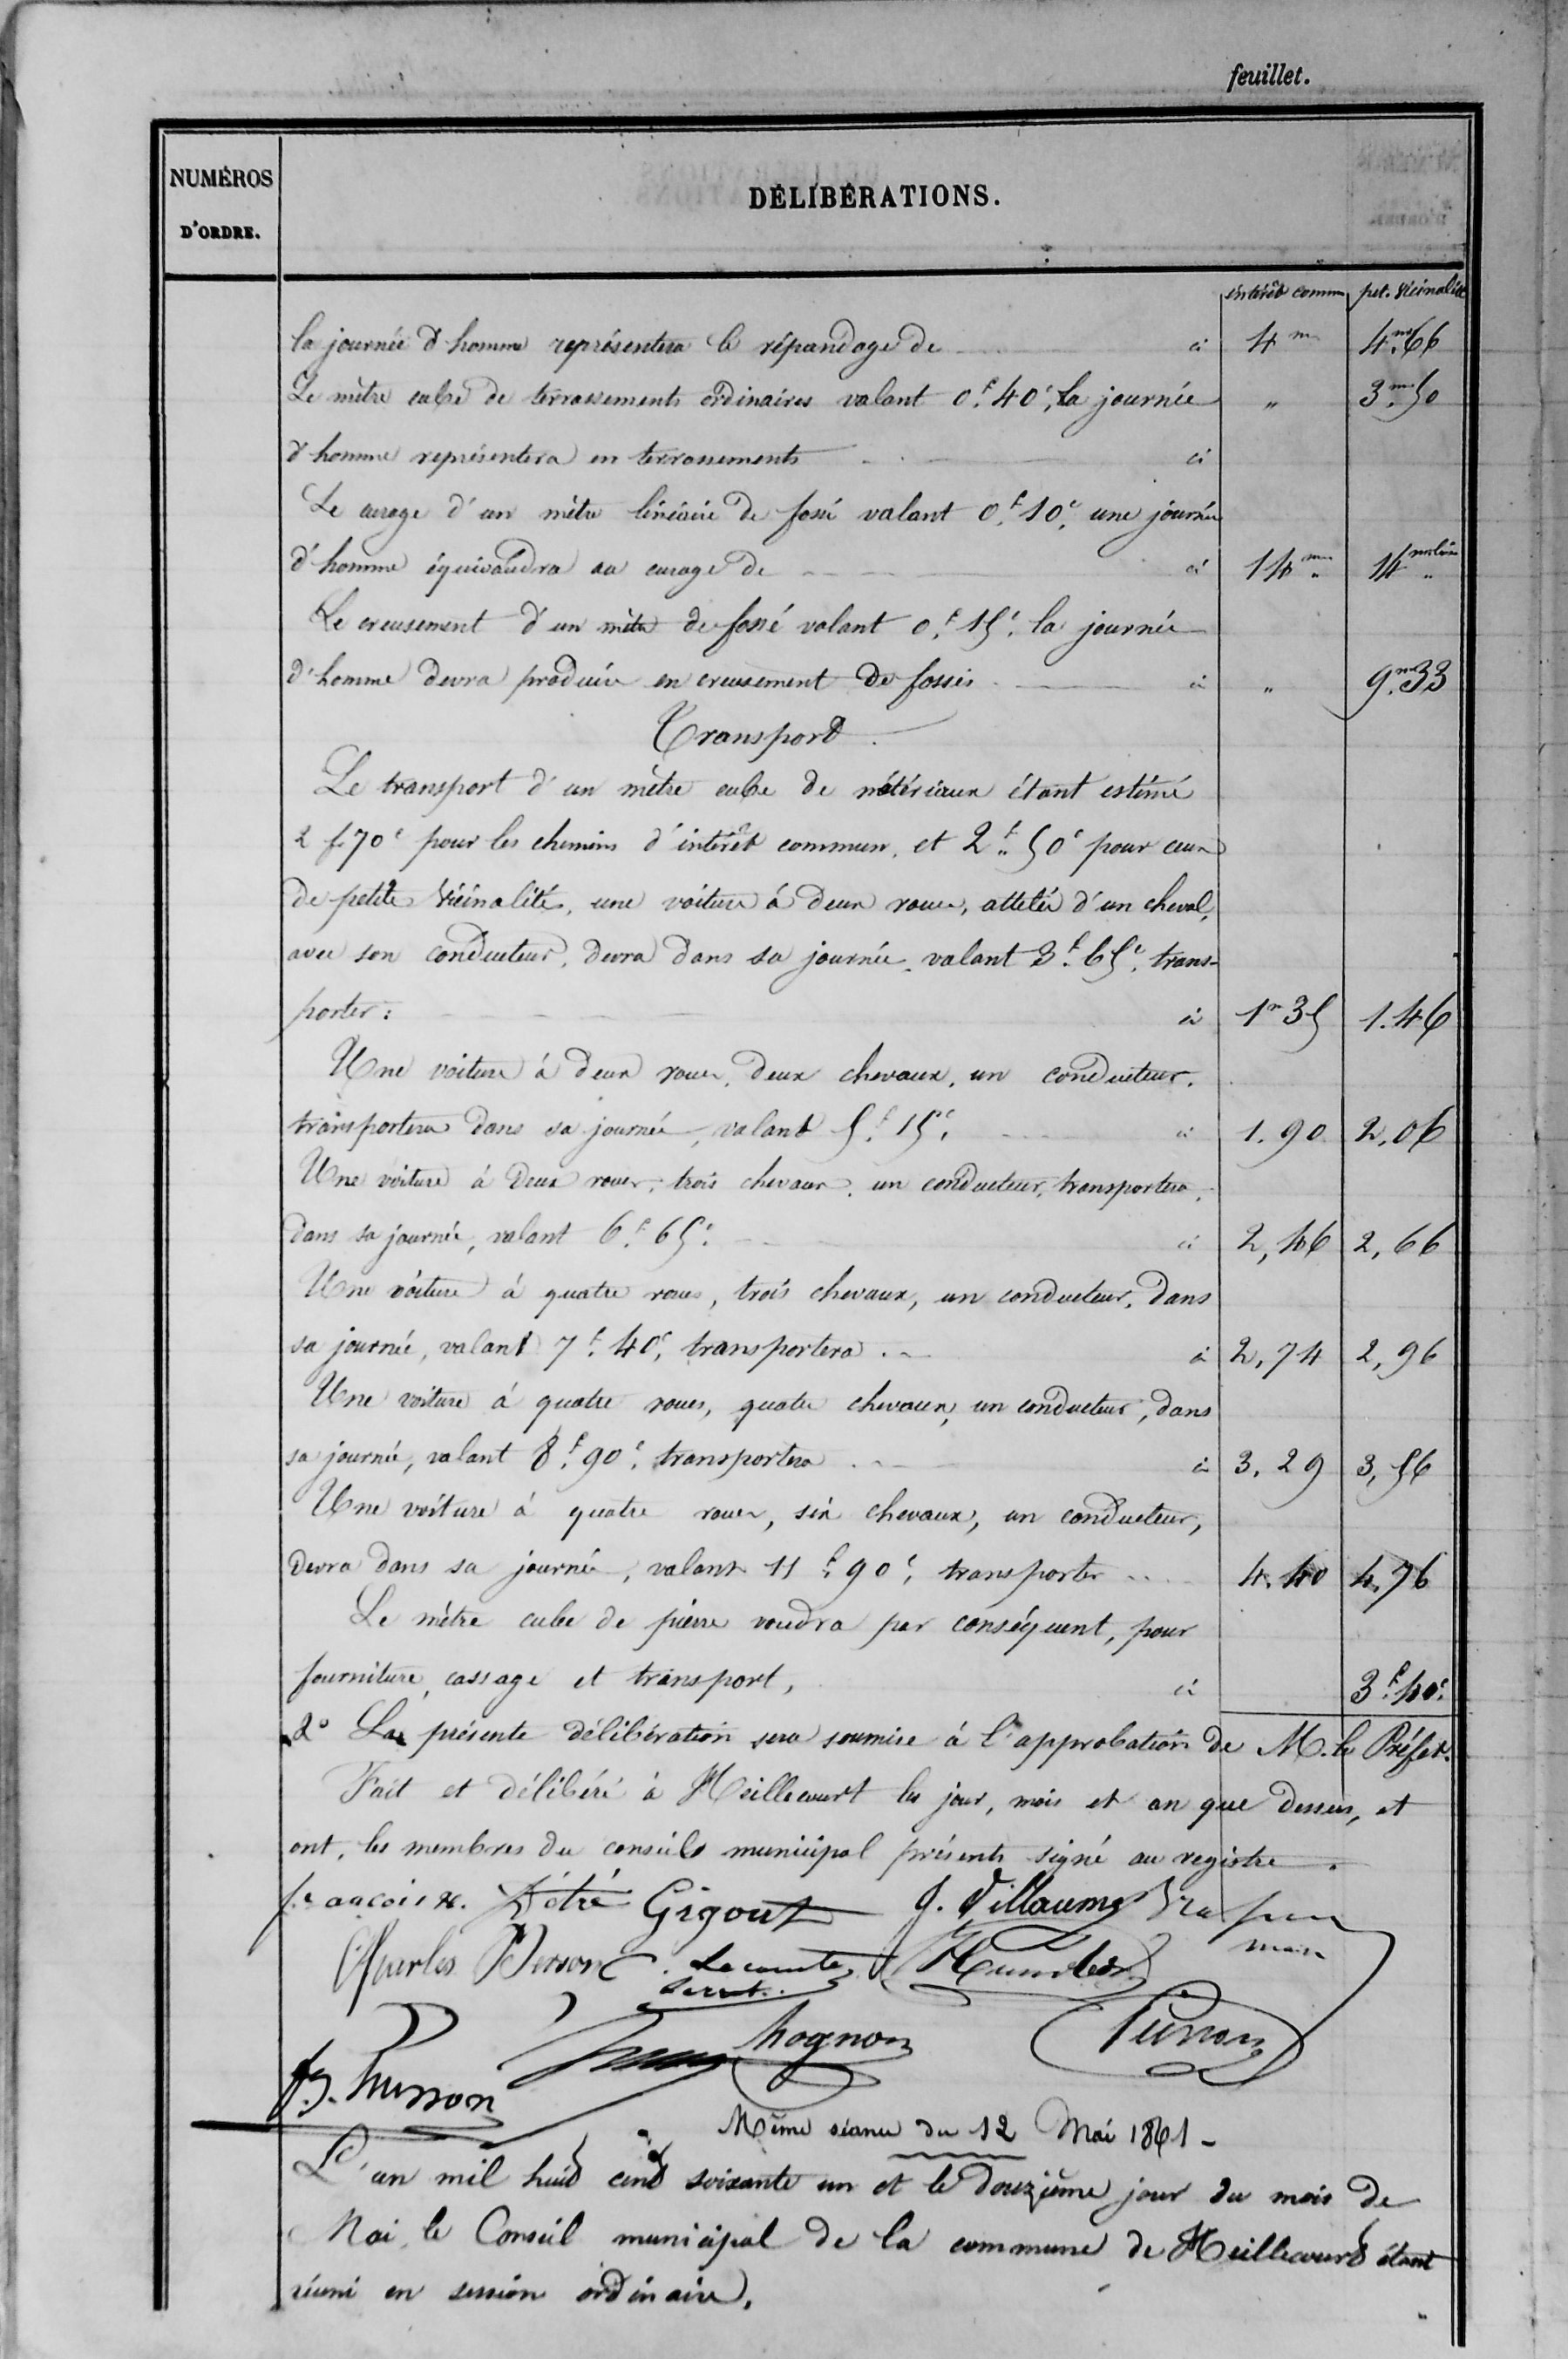 feuillet.
NUMÉROS
D'ORDRE.
DÉLIBÉRATIONS.
intérêt comm pet. vicinalité
la journée d'homme représentera le répandage de ci 4 m 4,m66
Le mètre cube de terrassements ordinaires valant 0,f 40c, la journée " 3,m50
d'homme représentera en terrassements ci
Le curage d'un mètre linéaire de fossé valant 0,f 10c, une journée
d'homme équivaudra au curage de ci 14 m " 14 m "
Le creusement d'un mètre de fossé valant 0,f 15c, la journée
d'homme devra produire en creusement de fossés ci " 9,m33
Transport
Le transport d'un mètre cube de matériaux étant estimé
2 f. 70c pour les chemins d'intérêt commun, et 2,f 50c pour ceux
de petite vicinalité, une voiture à deux roues, attelée d'un cheval,
avec son conducteur, devra dans sa journée, valant 3,f 65c, trans-
porter : ci 1m 35 1.46
Une voiture à deux roues, deux chevaux, un conducteur,
transportera dans sa journée, valant 5,f 15c, ci 1.90 2,06
Une voiture à deux roues, trois chevaux, un conducteur, transportera,
dans sa journée, valant 6,f 65c, ci 2,46 2,66
Une voiture à quatre roues, trois chevaux, un conducteur, dans
sa journée, valant 7,f 40c, transportera ci 2,74 2,96
Une voiture à quatre roues, quatre chevaux, un conducteur, dans
sa journée, valant 8,f 90c, transportera ci 3.29 3,56
Une voiture à quatre roues, six chevaux, un conducteur,
devra dans sa journée, valant 11,f 90c, transporter 4.40 4,76
Le mètre cube de pierre voudra par conséquent, pour
fourniture, cassage et transport, ci 3,f 40c
2° La présente délibération sera soumise à l'approbation de M. le Préfet.
Fait et délibéré à Heillecourt les jour, mois et an que dessus, et
ont, les membres du conseil municipal présents signé au registre.
francoisx. Détré Gigout J. Villaume
Charles Lecomte maire
Hognon Pierron
Même séance du 12 Mai 1861 -
L'an mil huit cent soixante un et le douzième jour du mois de
Mai, le Conseil municipal de la commune de Heillecourt étant
réuni en session ordinaire,